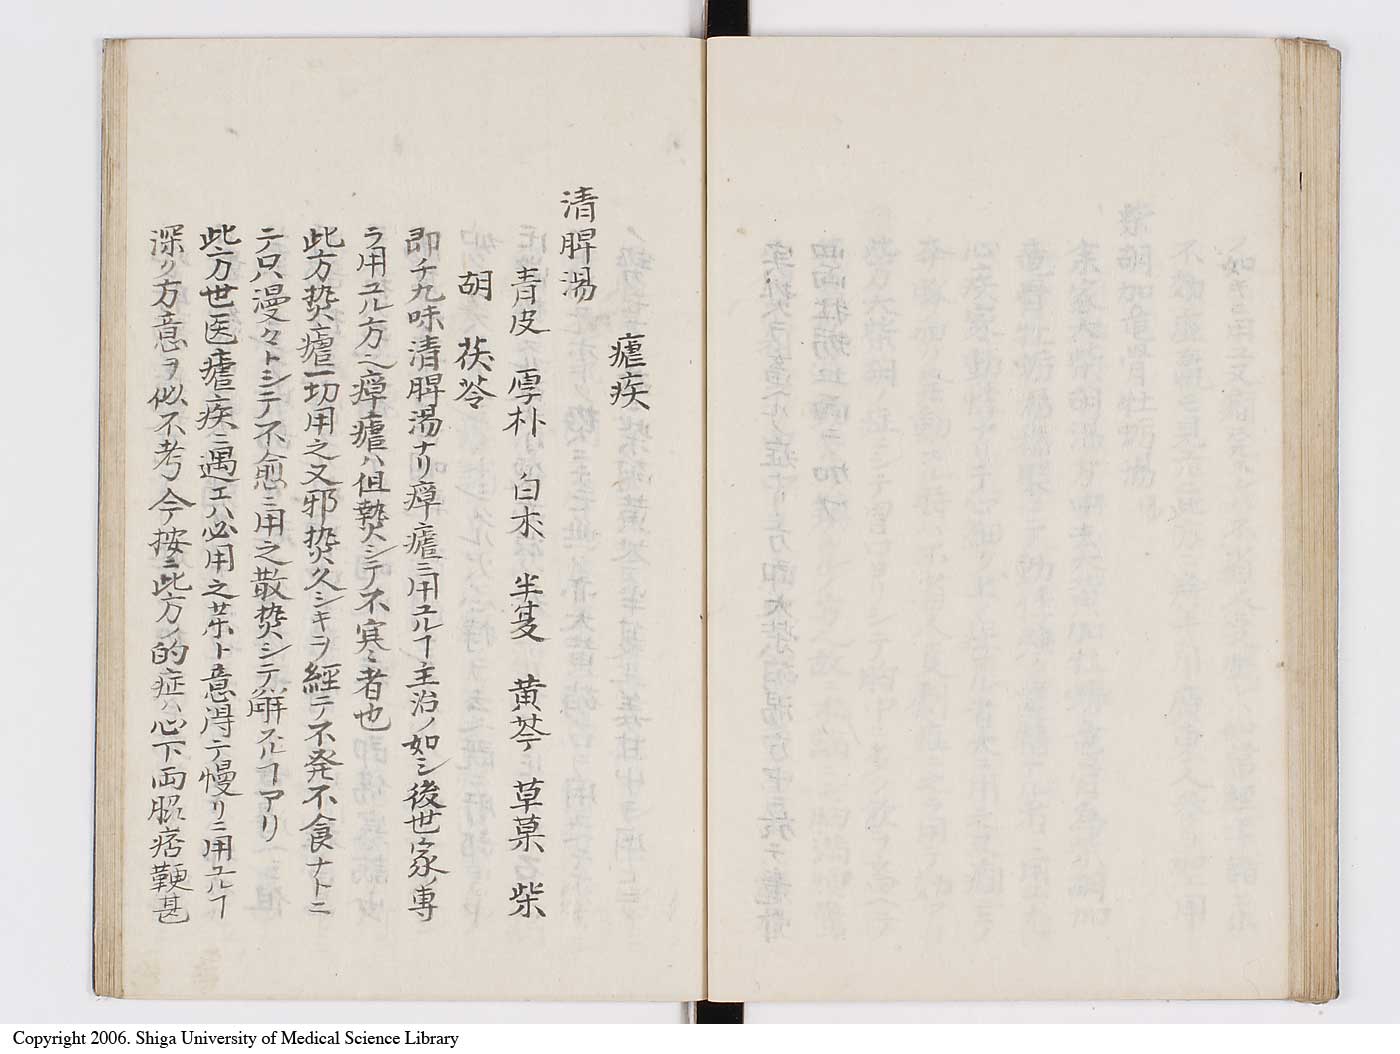 瘧疾
清脾湯
青皮 厚朴 白朮 半夏 黄芩 草菓 柴
胡 茯苓
即チ九味清脾湯ナリ瘴瘧ニ用ユルヿ主治ノ如シ後世家ノ専
ラ用ユル方也瘴瘧ハ但𤍠シテ不寒者也
此方𤍠瘧一切用之又邪𤍠久シキヲ經テ不発不食ナトニ
テ只漫々トシテ不愈ニ用之散𤍠シテ解スルヿアリ
此方世医瘧疾ニ遇エハ必用之茱ト意得テ慢リニ用ユルヿ
深ク方意ヲ似不考今按ニ此方ノ的症ハ心下両脇痞鞕甚
Copyright 2006. Shiga University of Medical Science Library